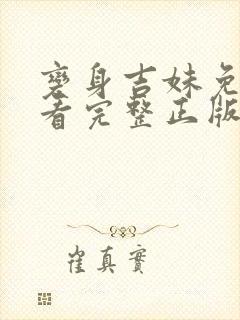 变身吉妹免
看完整正版
崔真實